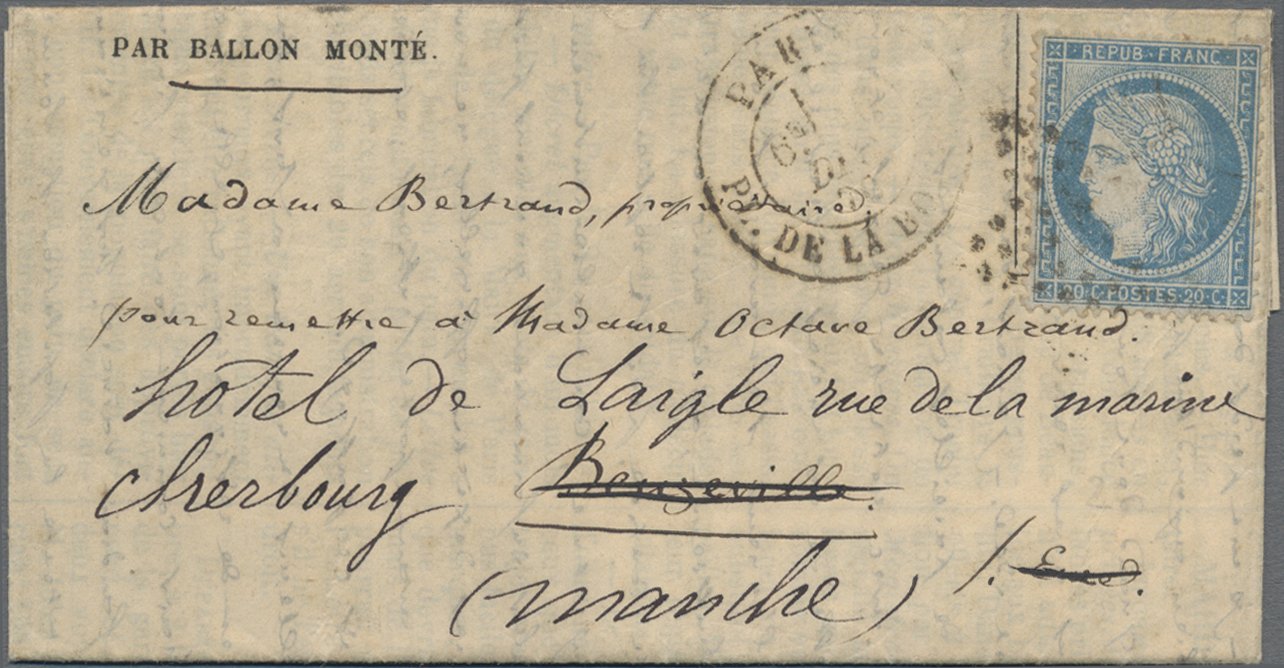 PAR BALLON MONTÉ.
PARIS
PL. DE LA BO
REPUB. FRANC.
20 C. POSTES. 20 C.
Madame Bertrand, propriétaire,
pour remettre à Madame Octave Bertrand.
hôtel de Laigle rue de la marine
cherbourg Beuzeville.
(manche) /. Eure.